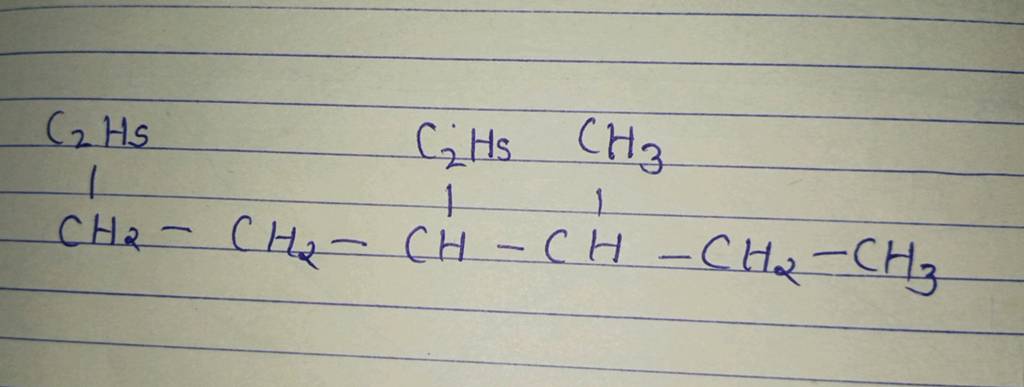 C₂H5 C₂H5 CH₃
CH₂ - CH₂ - CH - CH - CH₂ - CH₃